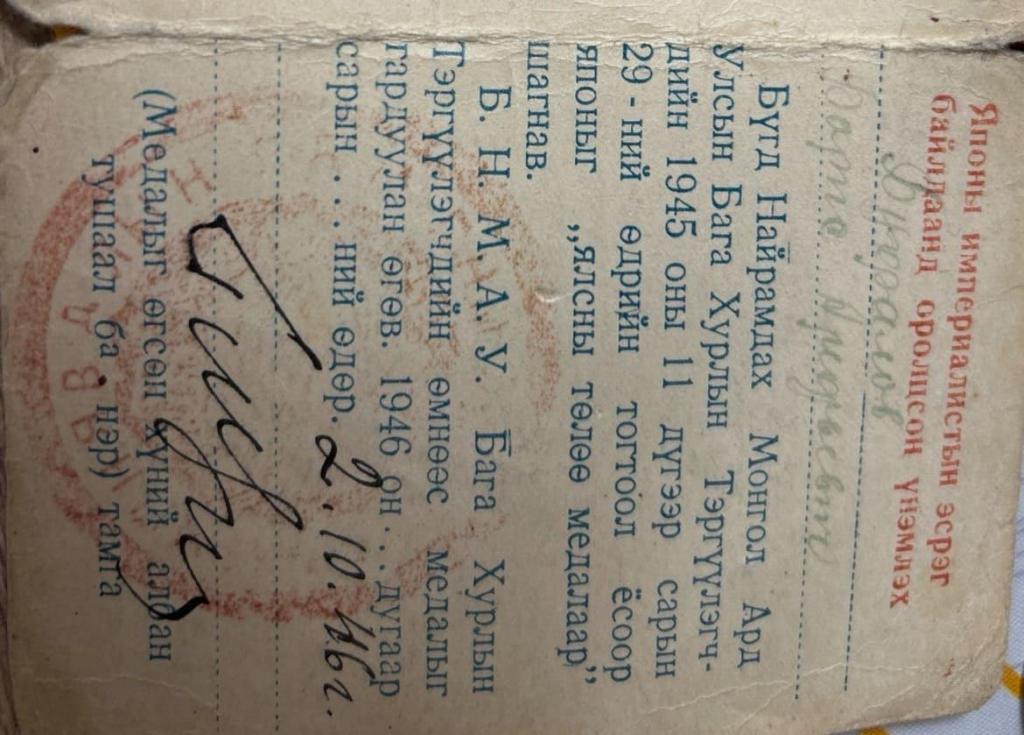 Японы империалистын эсрэг
байлдаанд оролцсон үнэмлэх
Бүгд Найрамдах Монгол Ард
Улсын Бага Хурлын Тэргүүлэгч-
дийн 1945 оны 11 дүгээр сарын
29-ний өдрийн тогтоол ёсоор
японыг „ялсны төлөө медалаар”
шагнав.
Б. Н. М. А. У. Бага Хурлын
Тэргүүлэгчдийн өмнөөс медалыг
гардуулан өгөв. 1946 он . . дугаар
сарын . . . ний өдөр. 2.10.46г.
(Медалыг өгсөн хүний албан
тушаал ба нэр) тамга